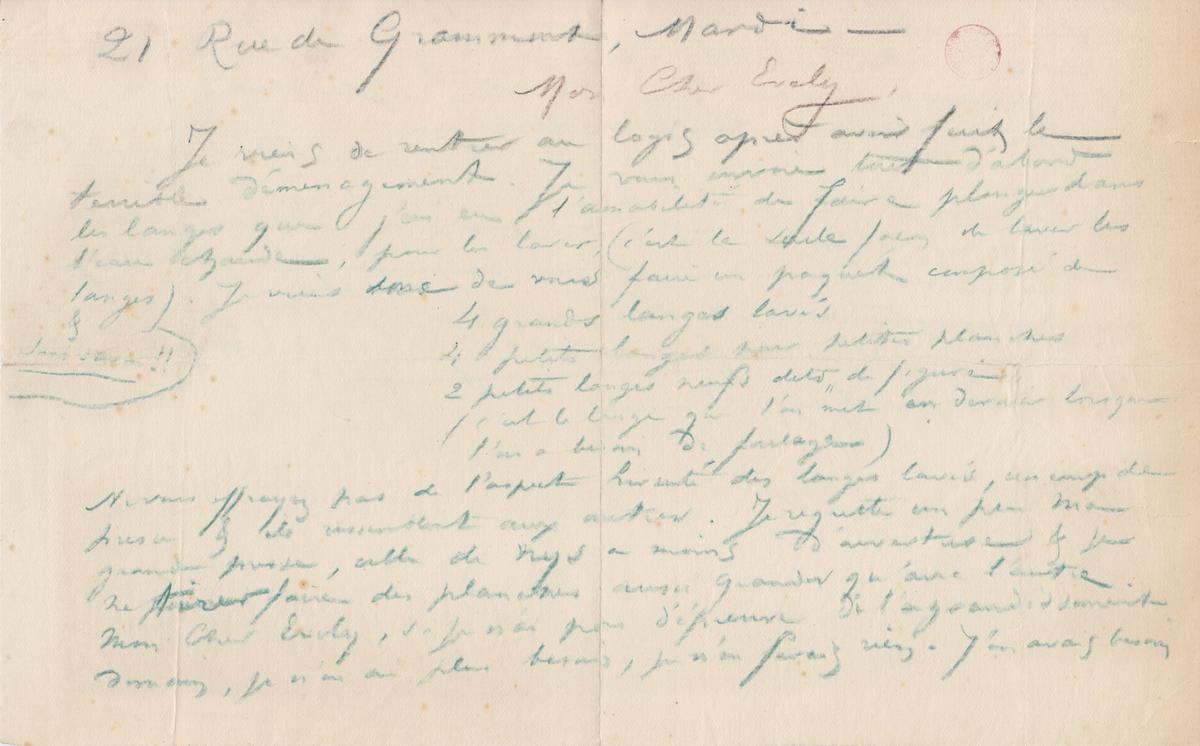 21 Rue de Grammont, Mardi —
Mon Cher Evely,
Je viens de rentrer au logis après avoir fait le
terrible déménagement. Je vous envoie tout d'abord
les langes que j'ai eu l'amabilité de faire plonger dans
l'eau chaude, pour les laver (c'est la seule façon de laver les
langes). Je viens donc de vous faire un paquet composé de
&
sans savon !!
4 grands langes lavés
4 petits langes pour petites planches
2 petits langes neufs dits "de figures"
(c'est le lange que l'on met en dernier lorsque
l'on a besoin de foulages)
Ne vous effrayez pas de l'aspect hirsuté des langes lavés, un coup de
presse & ils ressemblent aux autres. Je regrette un peu ma
grande presse, celle de Nys a moins d'ouverture & je
ne faire des planches aussi grandes qu'avec l'autre.
Mon Cher Evely, si je n'ai pas d'épreuve de l'agrandissement
demain, je n'en ai plus besoin, je n'en ferais rien. J'en avais besoin